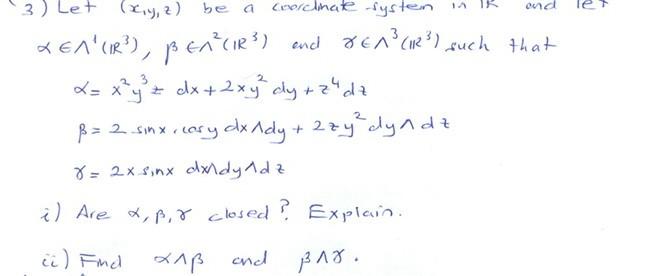 3) Let (x,y,z) be a coordinate system in ℝ³ and let
α ∈ Λ¹(ℝ³), β ∈ Λ²(ℝ³) and γ ∈ Λ³(ℝ³) such that
α = x²y³z dx + 2xy² dy + z⁴ dz
β = 2 sinx . cosy dx∧dy + 2zy² dy∧dz
γ = 2x sinx dx∧dy∧dz
i) Are α, β, γ closed? Explain.
ii) Find α∧β and β∧γ.